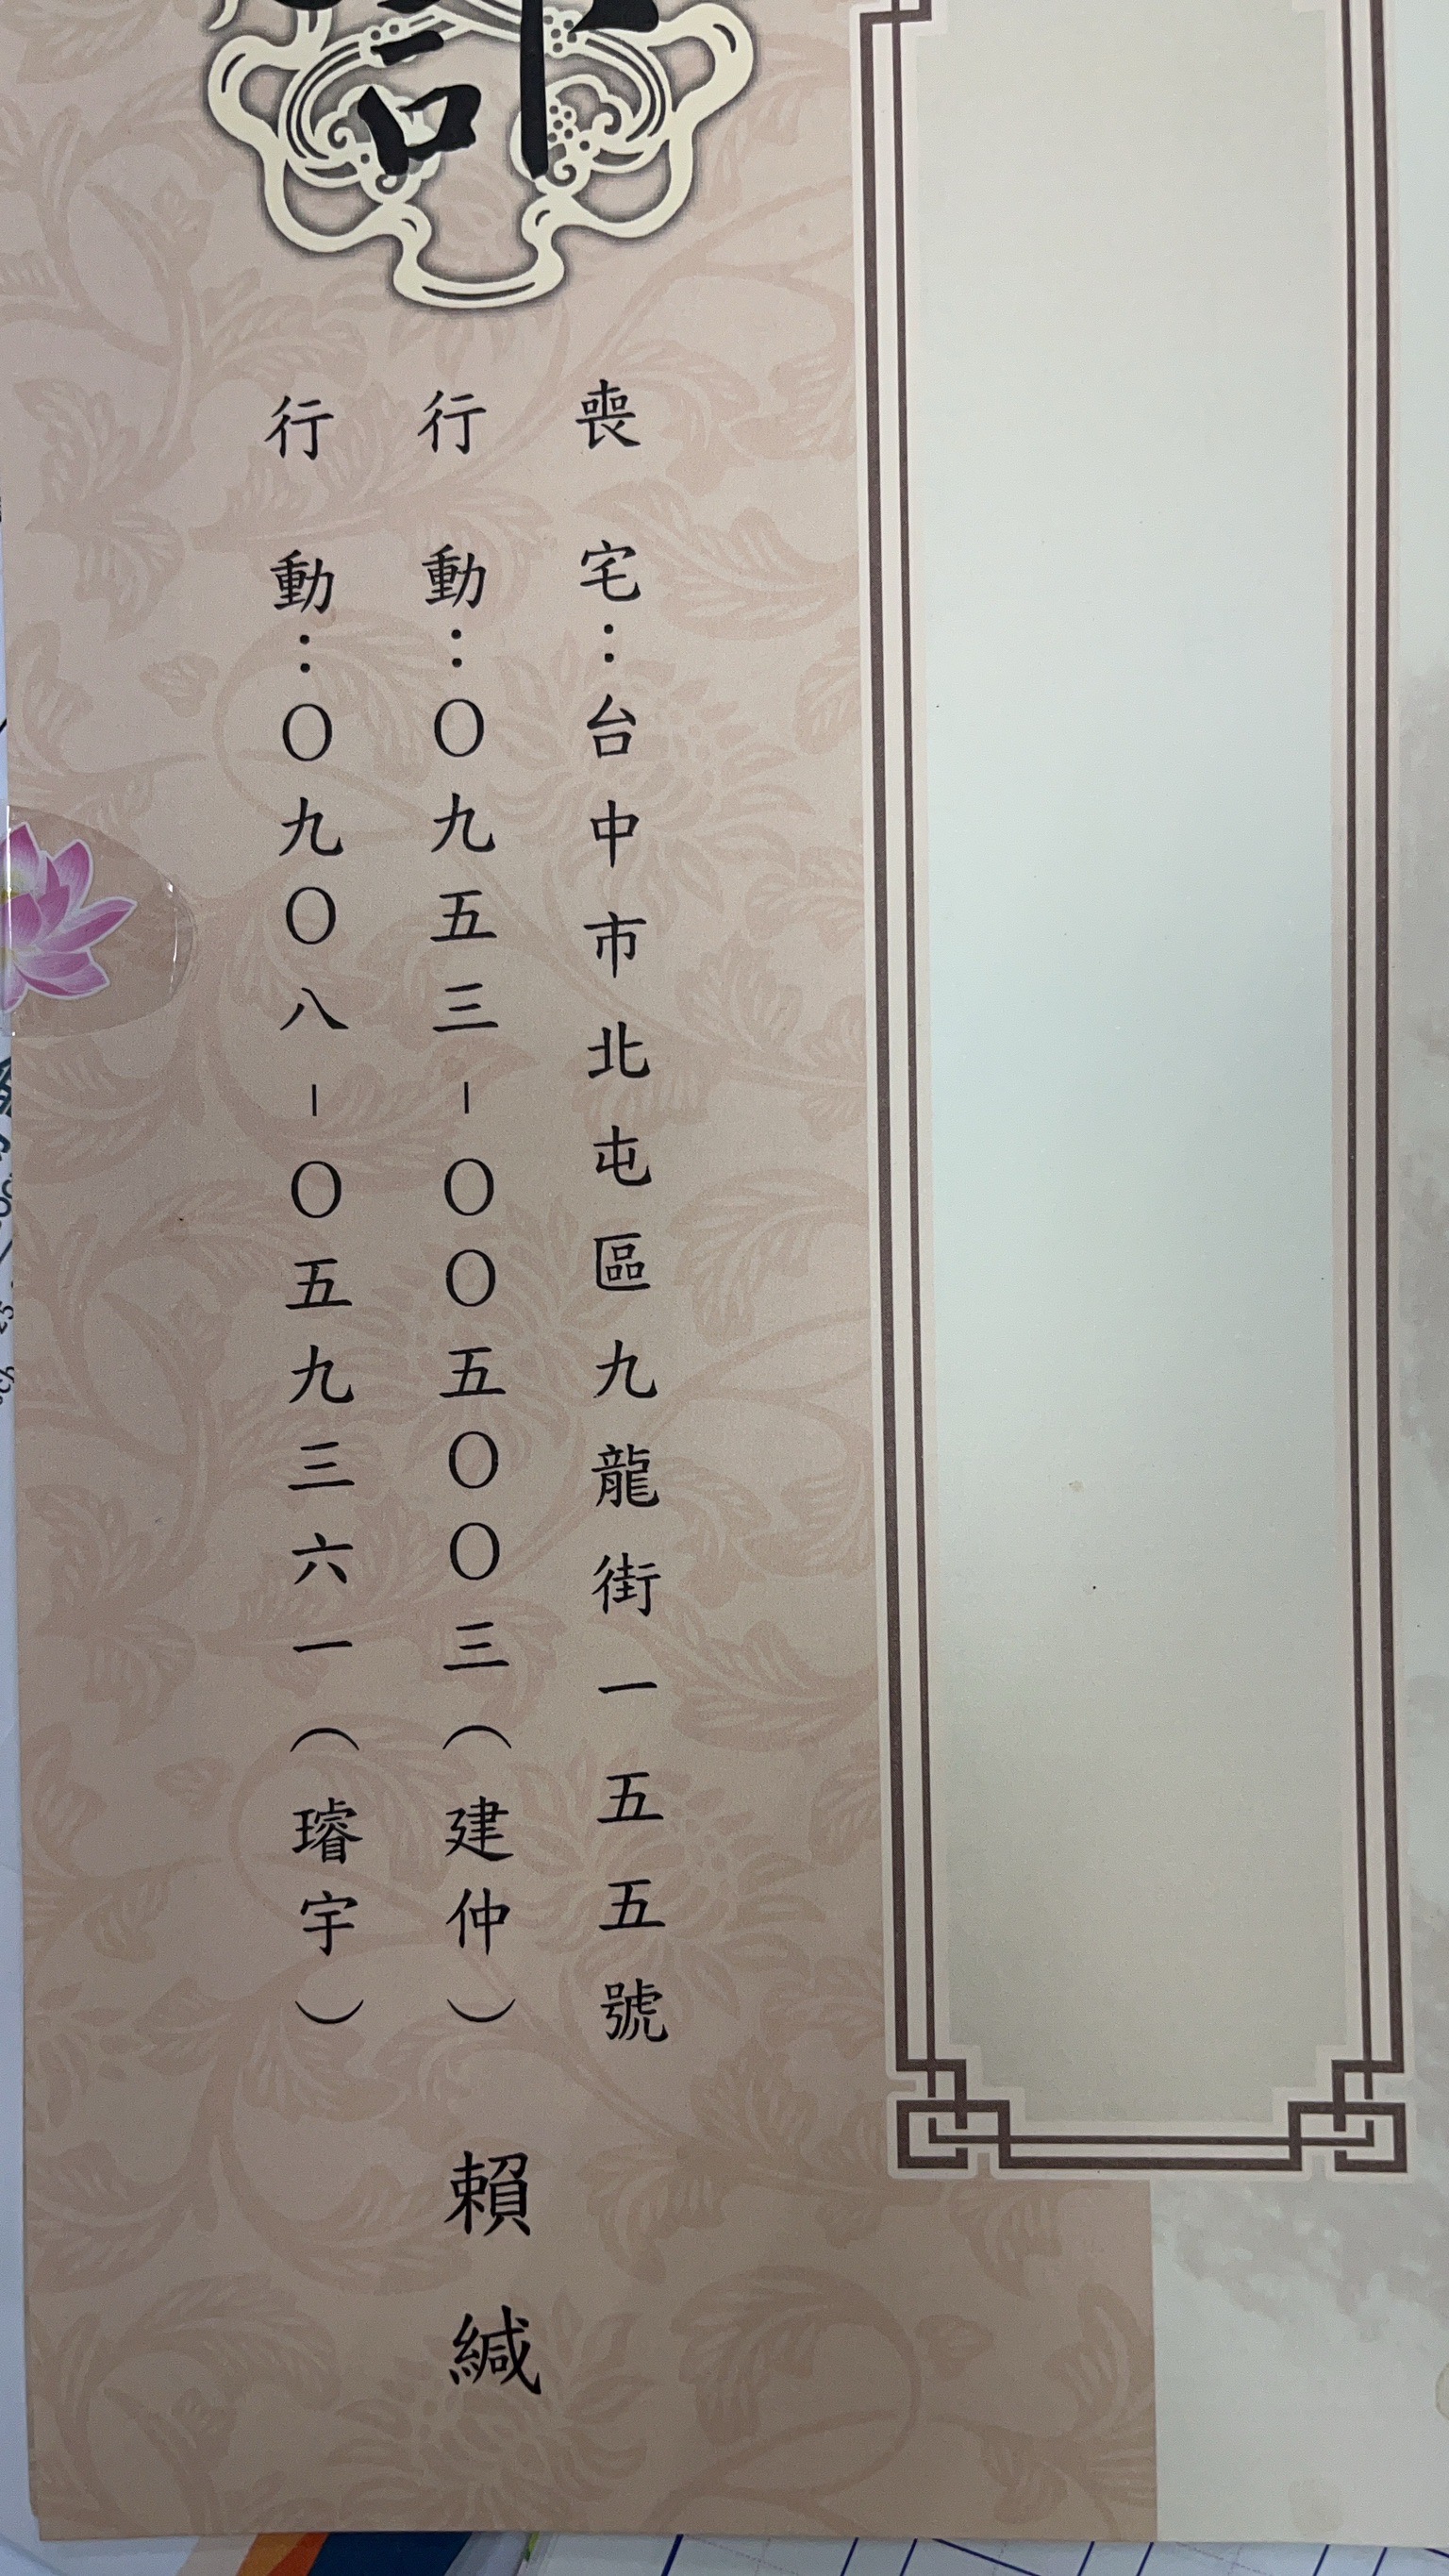 訃
喪宅：台中市北屯區九龍街一五五號
行動：〇九五三-〇〇五〇〇三（建仲）
行動：〇九〇八-〇五九三六一（璿宇）
賴緘